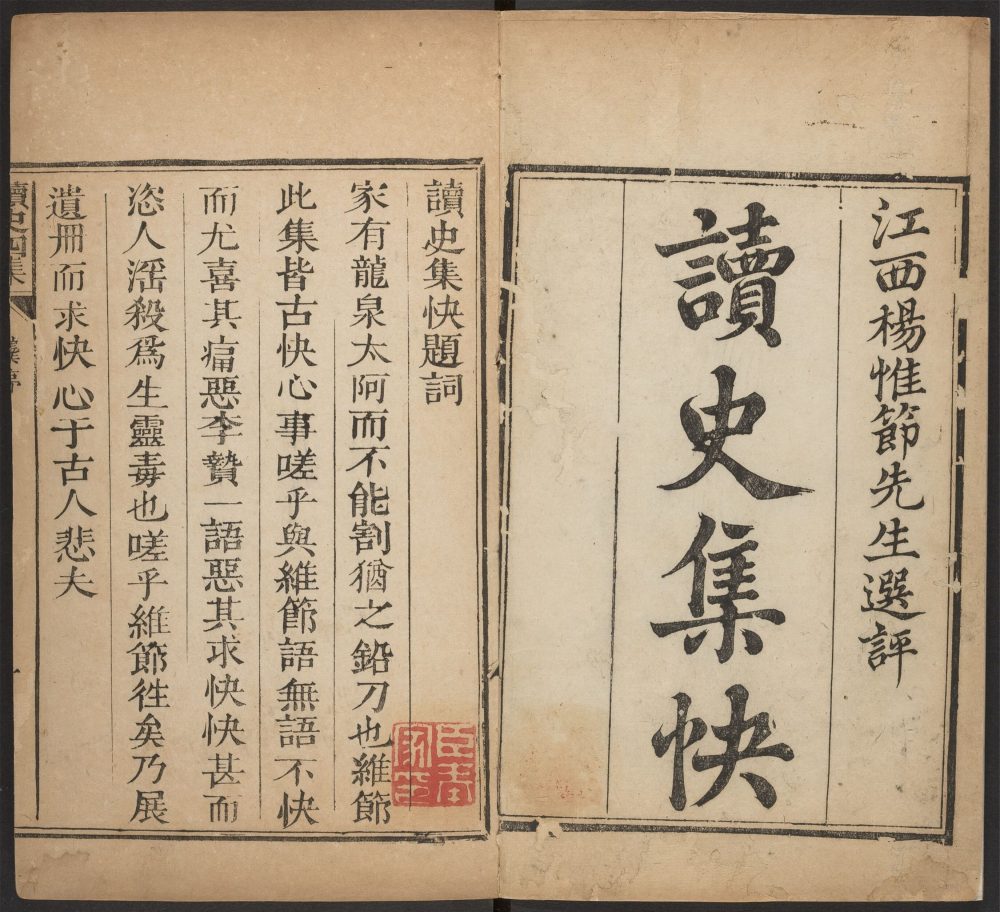 江西楊惟節先生選評
讀史集快
讀史集快題詞
家有龍泉太阿而不能割猶之鉛刀也維節
此集皆古快心事嗟乎與維節語無語不快
而尤喜其痛惡李贄一語惡其求快快甚而
恣人滛殺爲生靈毒也嗟乎維節徃矣乃展
遺冊而求快心于古人悲夫
讀史四集